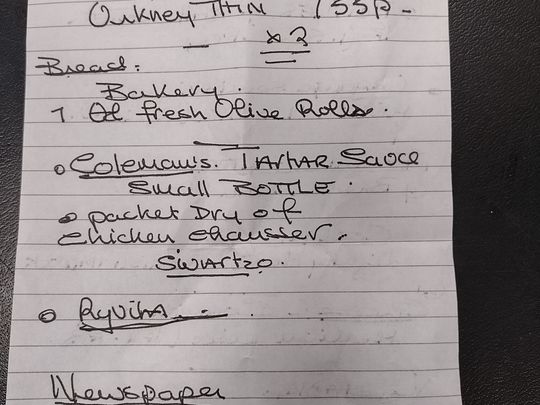 Orkney THIN 155p -
x 2
Bread:
Bakery.
7 Od fresh Olive Rolls.
Colemans. TARTAR Sauce
Small BOTTLE.
packet Dry of
chicken chausser.
SWARTZO.
RYVITA
Newspaper